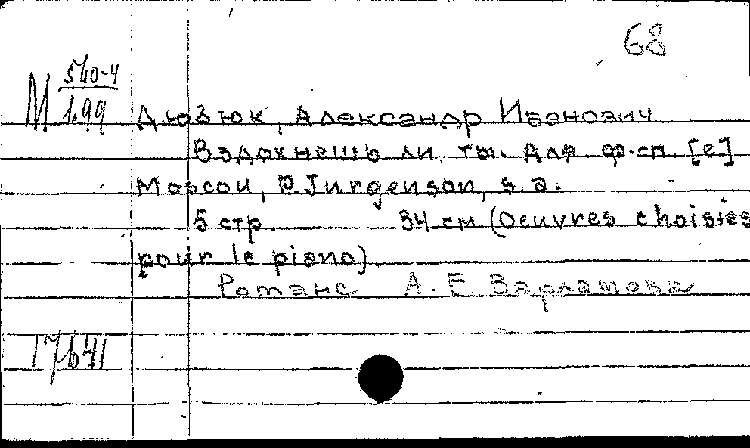 68
М 540-4
1.99
Дюбюк, Александр Иванович
Вздохнешь ли ты. Для ф.-п. [e.]
Moscou, P. Jurgenson, s.a.
5 стр. 34 см (Oeuvres choisies
pour le piano)
Романс А. Е. Варламова
17641